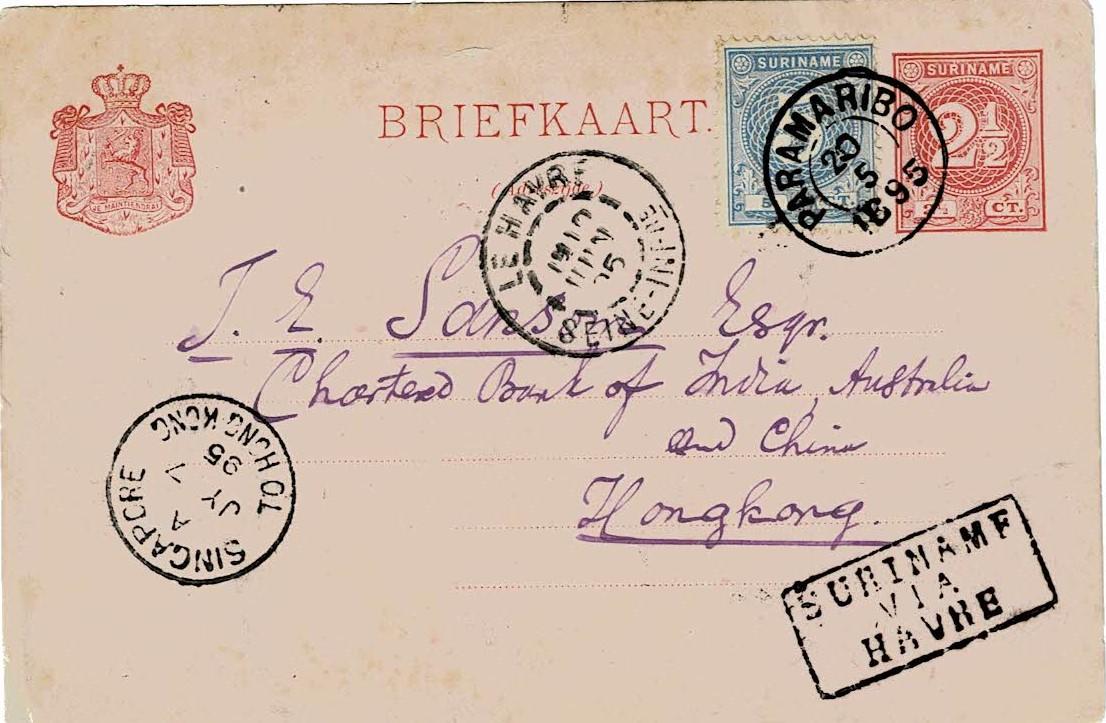 SURINAME
SURINAME
2½
CT.
PARAMARIBO
20
5
1895
JE MAINTIENDRAI
BRIEFKAART.
LE HAVRE
SEINE-INFRE
J. E. Esqr.
Chartered Bank of India, Australia
and China
Hongkong.
SINGAPORE TO HONG KONG
A
JY 7
95
SURINAME
VIA
HAVRE